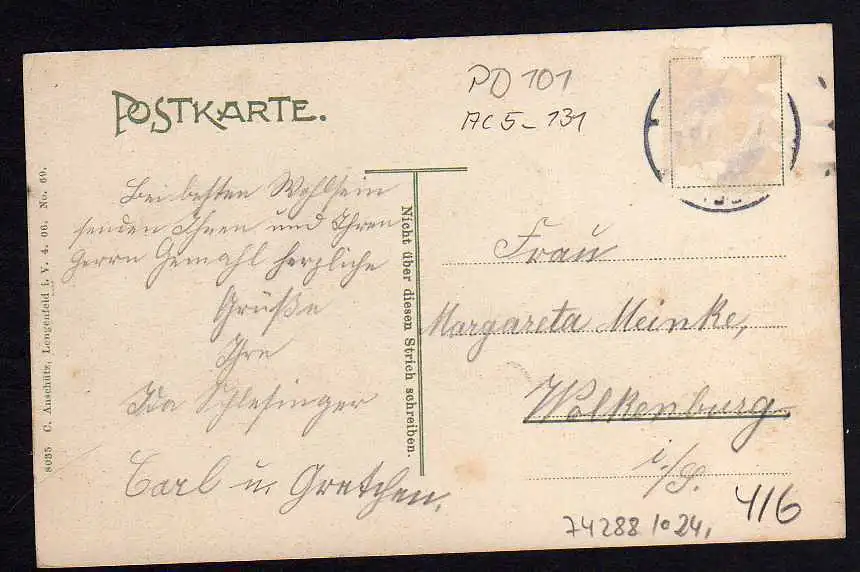 POSTKARTE.
PD 101
AC 5 - 131
Bei besten Wohlsein
senden Ihnen und Ihren
Herrn Gemahl herzliche
Grüße
Ihre
Ida Schlesinger
Carl u. Gretchen.
Nicht über diesen Strich schreiben.
8035 C. Anschütz, Lengenfeld i. V. 4. 06. No. 60.
Frau
Margareta Meinke,
Wolkenburg
i./S.
416
74288 10 24,